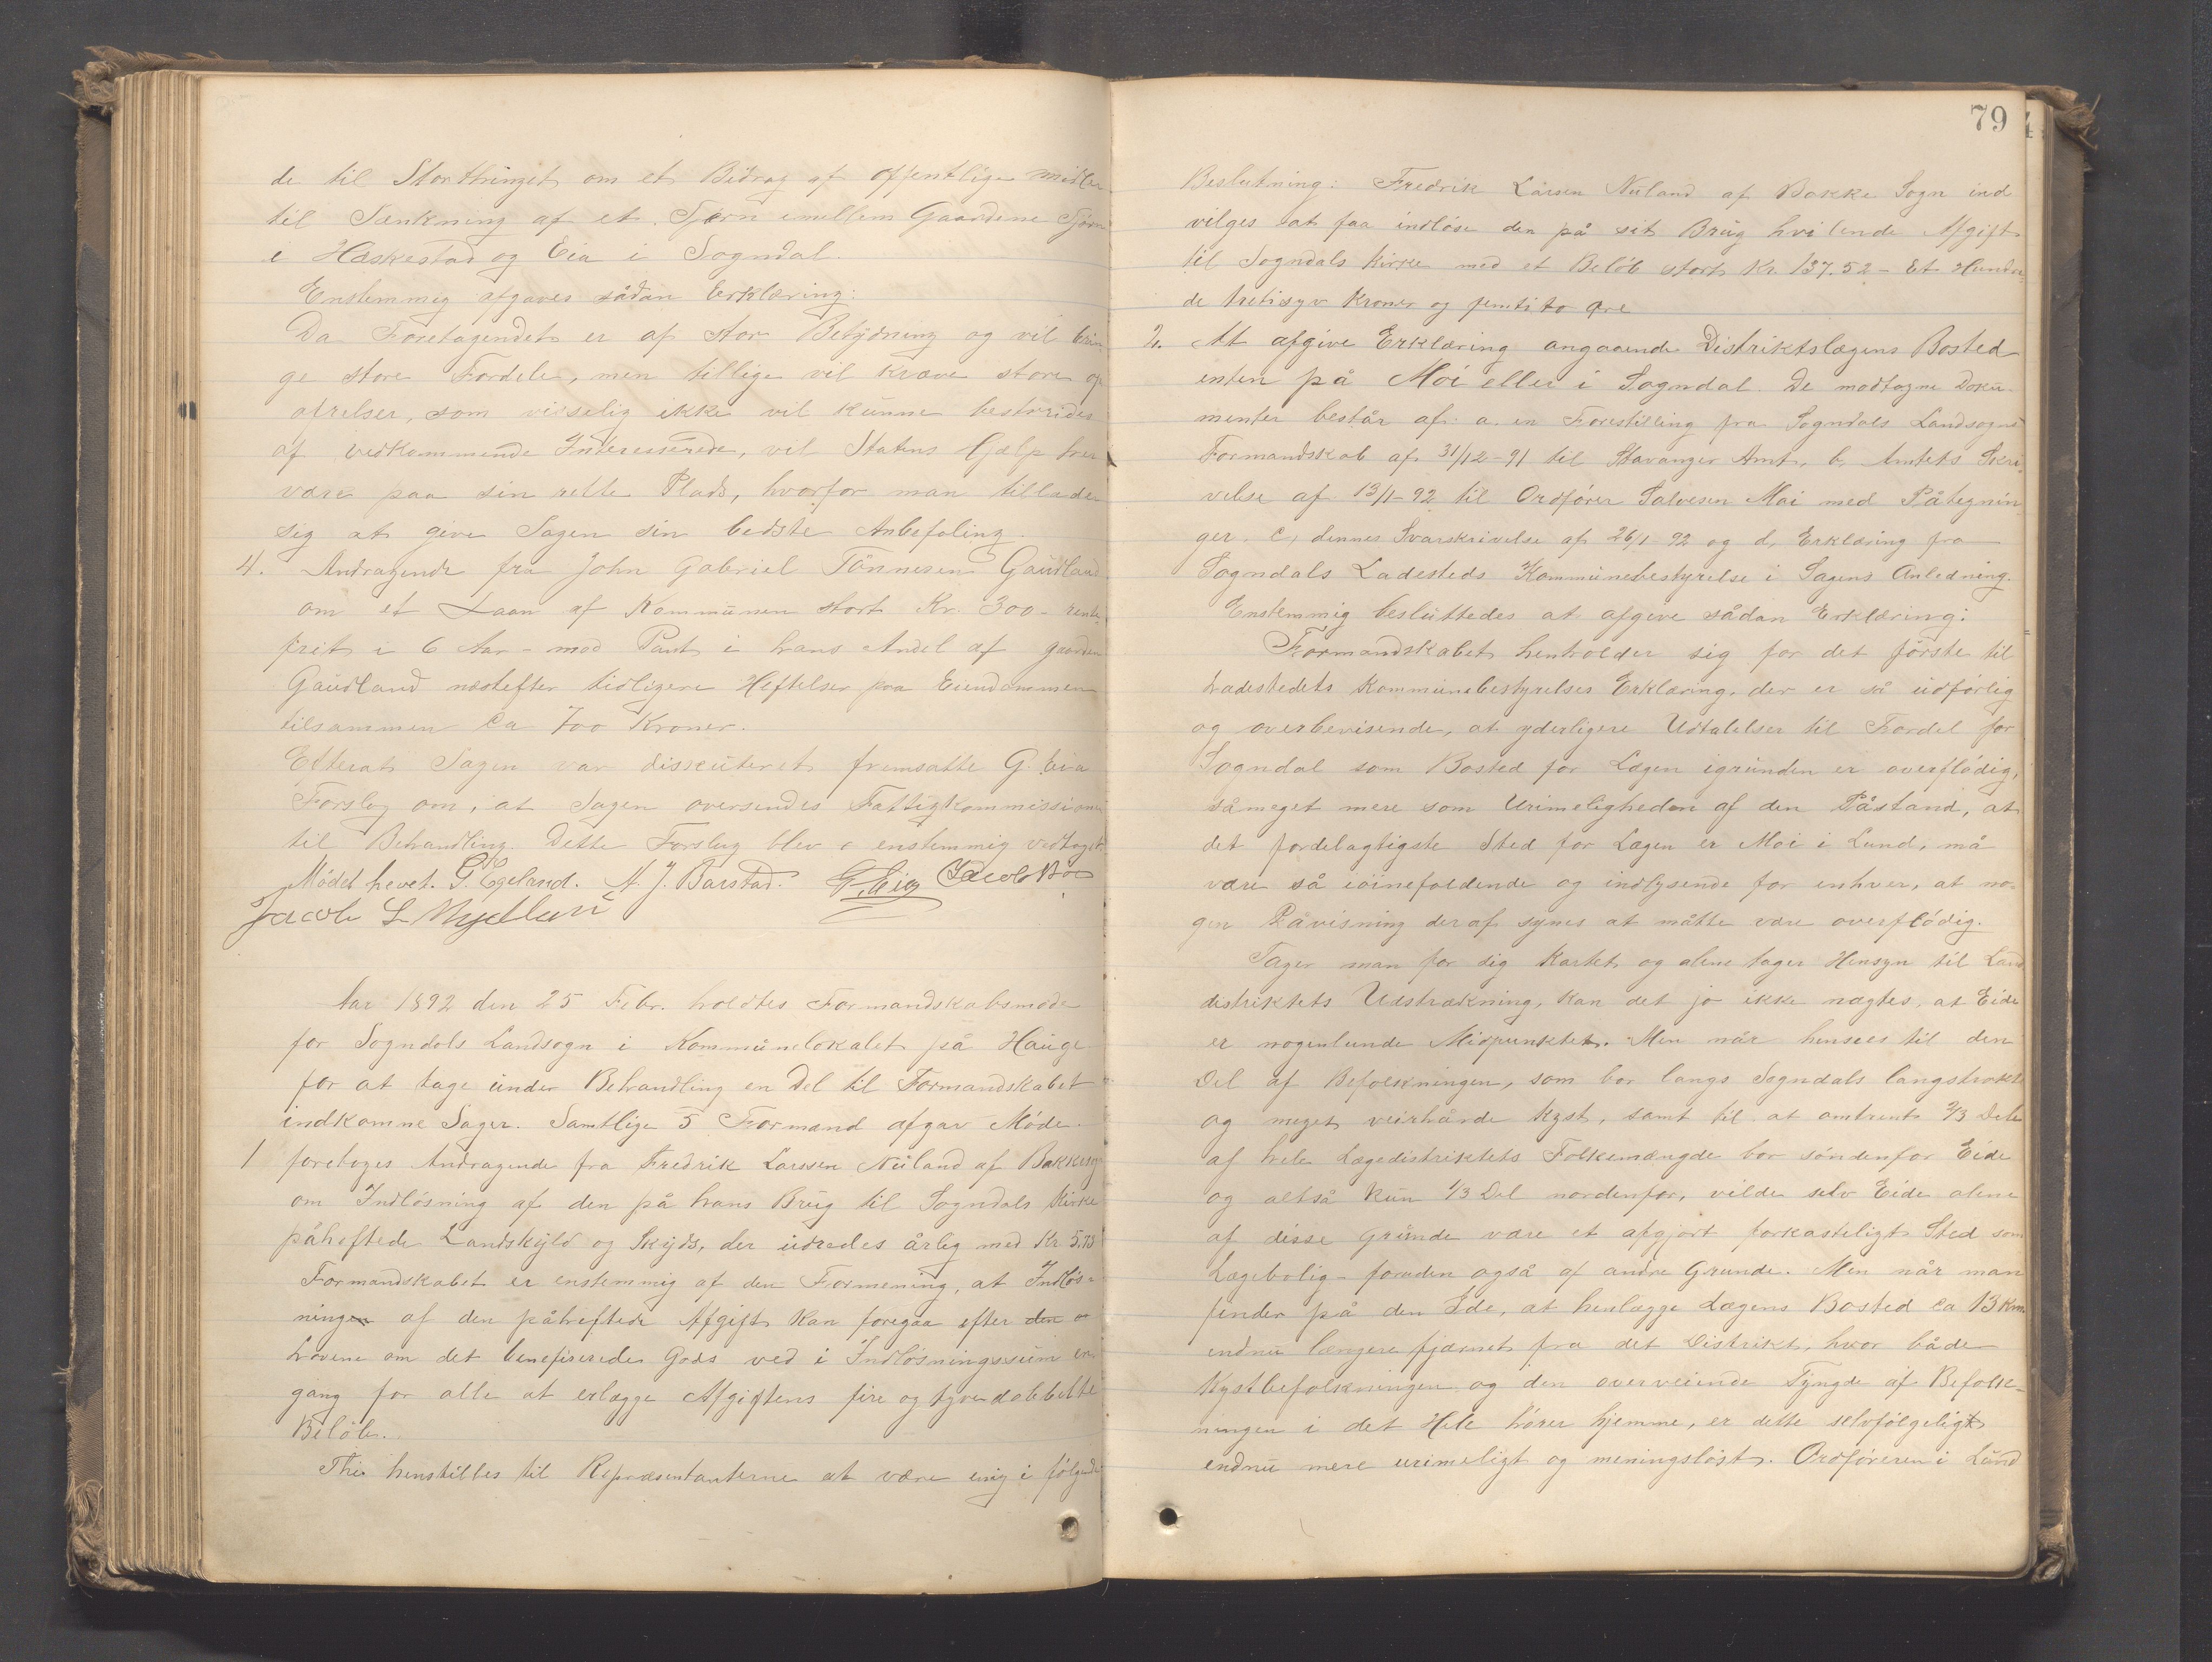 de til Storthinget om et Bidrag af offentlige midler
til Sænkning af et Tjern imellem Gaardene Tjörn
i Heskestad og Eia i Sogndal.
Enstemmig afgaves sådan Erklæring:
Da Foretagendet er af stor Betydning og vil brin
ge store Fordele, men tillige vil kræve store op
ofrelser, som visselig ikke vil kunne bestrides
af vedkommende Interesserede, vil Statens Hjælp her
være paa sin rette Plads, hvorfor man tillader
sig at give Sagen sin bedste Anbefaling.
4. Andragende fra John Gabriel Tönnesen Gaudland
om et Laan af Kommunen stort Kr. 300 - rente
frit i 6 Aar - mod Pant i hans Andel af gaarden
Gaudland næstefter tidligere Heftelser paa Eiendommen
tilsammen Ca 700 Kroner.
Efterat Sagen var diskuteret fremsatte G. Eia
Forslag om, at Sagen oversendes Fattigkommissionen
til Behandling. Dette Forslag blev enstemmig vedtaget.
Mödet hevet. G. Egeland. A. J. Barstad. G. Eia Jacob Bøe
Jacob L Mydland
Aar 1892 den 25 Febr. holdtes Formandskabsmöde
for Sogndals Landsogn i Kommunelokalet på Hauge
for at tage under Behandling en Del til Formandskabet
indkomne Sager. Samtlige 5 Formænd afgav Möde.
1 foretoges Andragende fra Fredrik Larssen Nuland af Bakke sogn
om Indlösning af den på hans Brug til Sogndals Kirke
påheftede Landskyld og Skyds, der udredes årlig med Kr. 5.73
Formandskabet er enstemmig af den Formening, at Indlös-
ningen af den påheftede Afgift kan foregåa efter den
Lovene om det beneficerede Gods ved i Indlösningssum en
gang for alle at erlægge Afgiftens fire og tyvedobbelte
Belöb.
Thi henstilles til Repræsentanterne at være enig i fölgende
79
Beslutning: Fredrik Larsen Nuland af Bakke Sogn ind
vilges at faa indlöse den på sit Brug hvilende Afgift
til Sogndals Kirke med et Belöb stort Kr. 137.52 - Et Hundre
de tretisyv Kroner og femtito Øre
2. At afgive Erklæring angaaende Distriktslægens Bosted
enten på Moi eller i Sogndal. De modtagne Doku-
menter består af: a. en Forestilling fra Sogndals Landsogns
Formandskab af 31/12-91 til Stavanger Amt, b, Amtets Skri-
velse af 13/1-92 til Ordförer Salvesen Moi med Påtegnin
ger. c, dennes Svarskrivelse af 26/1 92 og d, Erklæring fra
Sogndals Ladesteds Kommunebestyrelse i Sagens Anledning.
Enstemmig besluttedes at afgive sådan Erklæring:
Formandskabet henholder sig for det förste til
Ladestedets Kommunebestyrelses Erklæring, der er så udförlig
og overbevisende, at yderligere Udtalelser til Fordel for
Sogndal som Bosted for Lægen igrunden er overflödig,
såmeget mere som Urimeligheden af den Påstand, at
det fordelagtigste Sted for Lægen er Moi i Lund, må
være så iöinefaldende og indlysende for enhver, at no-
gen Påvisning deraf synes at måtte være overflödig.
Tager man for sig Kartet og alene tager Hensyn til Land
distriktets Udstrækning, kan det jo ikke nægtes, at Eide
er nogenlunde Midpunktet. Men når henseees til den
Del af Befolkningen, som bor langs Sogndals langstrakte
og meget veirhårde Kyst, samt til at omtrent 2/3 Dele
af hele Lægedistriktets Folkemængde bor söndenfor Eide
og altså kun 1/3 Del nordenfor, vilde selv Eide alene
af disse grunde være et afgjort forkasteligt Sted som
Lægebolig - foruden også af andre Grunde. Men når man
finder på den Ide, at henlægge Lægens Bosted Ca 13 Km
endnu længere fjærnet fra det Distrikt, hvor både
Kystbefolkningen og den overveiende Tyngde af Befolk-
ningen i det Hele hörer hjemme, er dette selvfölgeligt
endnu mere urimeligt og meningslöst. Ordföreren i Lund